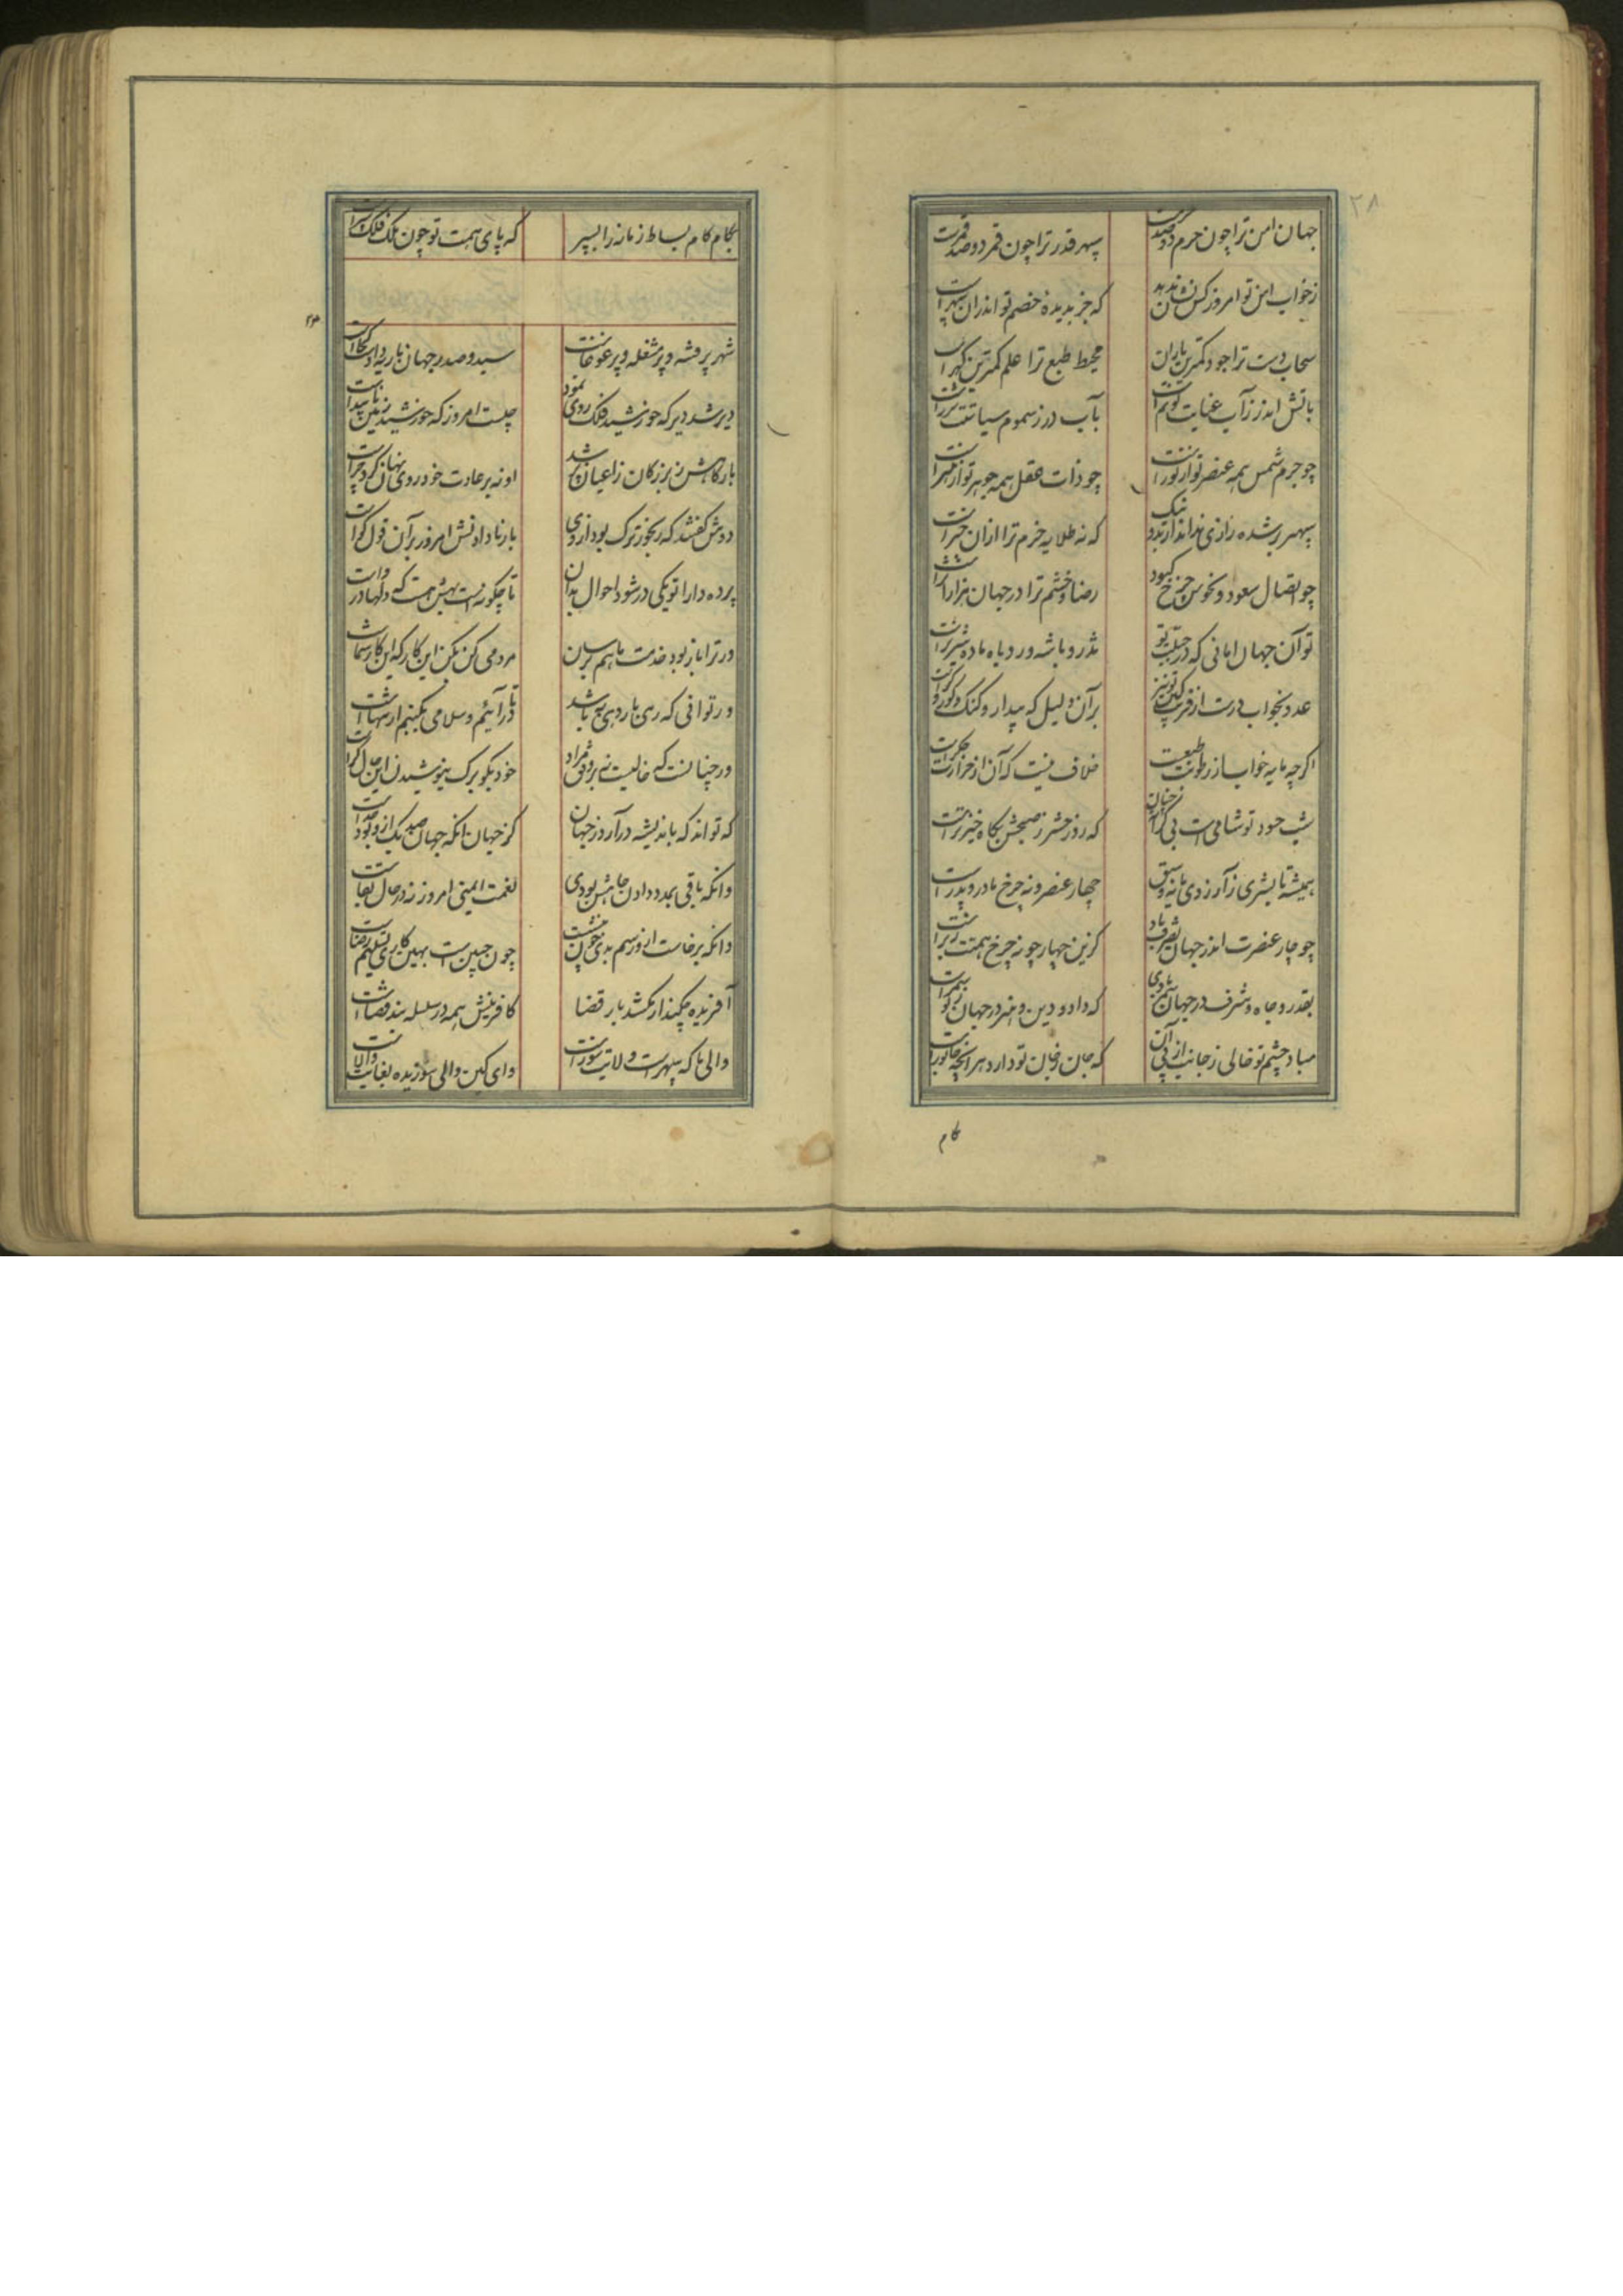 ۲۸
جهان امن ترا چون حرم دو صدست سپهر قدر ترا چون قمر دو صد قمرست
زخواب امن تو امروز کس نشان ندهد که جز بدیده خصم تو اندران سهرست
سحاب دست ترا جود کمترین باران محیط طبع ترا علم کمترین گهرست
بآتش اندر ز آب عنایت تو نم است بآب در ز سموم سیاستت شررست
چو جرم شمس همه عنصر تو از نورست چو ذات عقل همه جوهر تو از هنرست
سپهر بر شده رازی نداند از بد و نیک که نه طلایه حزم ترا ازان خبرست
چو اتصال سعود و نحوس چرخ کبود رضا و خشم ترا در جهان هزار اثرست
تو آن جهان امانی که در حمایت تو تذرو با شه و روباه ماده شیر نرست
عدو بخواب درست از فریب
بر آن دلیل که بیدار و گنگ و کور و کرست
اگرچه مایه خواب از رطوبت طبعست خلاف نیست که آن از حرارت جگرست
شب حسود تو شامی است بی کران زچنان که روز حشر ز صبحش پگاه خیزترست
همیشه تا بشری ز آرزوی مایه و سبق چهار عنصر و نه چرخ مادر و پدرست
چو چار عنصرت اندر جهان تصرف باد کزین چهار چو نه چرخ همتت زبرست
بقدر و جاه و شرف در جهان سمر شدی که داد و دین و هنر در جهان ز تو سمرست
مباد چشم تو خالی ز جانبت از پی آن که جان زجان تو دارد هر آنچه جانورست
گام
بگام کام بساط زمانه را بسپر که پای همت تو چون ملک فلک سپرست
شهر پر فتنه و پر مشغله و پر غوغاست سید و صدر جهان بار ندادست کجاست
دیر شد دیر که خورشید فلک روی نمود چیست امروز که خورشید زمین ناپیداست
بارگاهش ز بزرگان و ز اعیان پر شد او نه بر عادت خود روی نهان کرد چراست
دوش گفتند که رنجور ترک بود آری بار نادادنش امروز بر آن قول گواست
پرده دارا تو یکی در شو و احوال بدان تا چگونست بهش هست که دلها درواست
ور ترا بار بود خدمت ما هم برسان مردمی کن بکن این کار که این کار شماست
ور توانی که رهی بار دهی به باشد تا در آئیم و سلامی بکنیم ار تنهاست
ور چنانست که حالیست نه بر وفق مراد خود بگو برگ نیوشیدن این حال کراست
که تواند که باندیشه در آرد ز جهان کز جهان آنکه جهان صد یک ازو بود جداست
وانکه باقی بمدد دادن جاهش بودی نعمت ایمنی امروز نه در حال بقاست
وانکه برخاست ازو رسم بدی چون بنشست چون چنین است بهین کاری تسلیم و رضاست
آفریده چکند ار نکشد بار قضا کافرینش همه در سلسله بند قضاست
والی ما که سپهرست ولایت سوزست وای کین والی سوزیده بغایت والاست